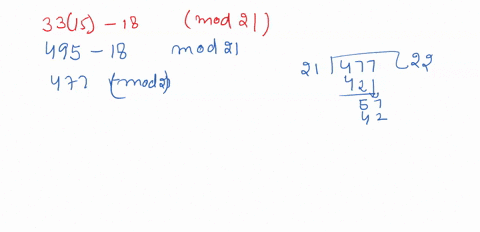 33(15) - 18 (mod 21)
495 - 18 mod 21
477 (mod 2)
21 477 22
42
57
42